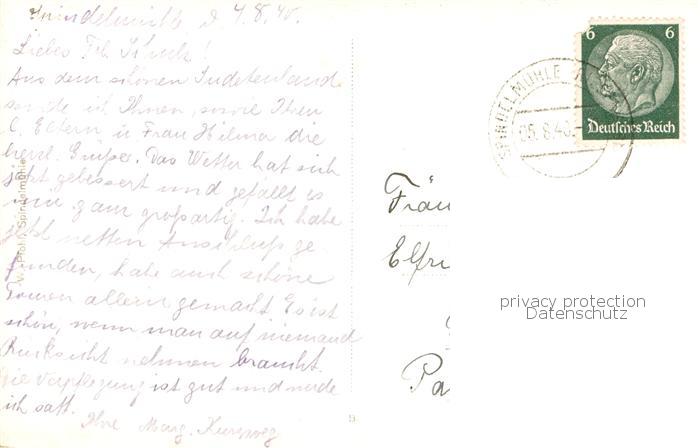 Spindelmühle d. 4.8.40.
Liebes Frl. !
Aus dem schönen Sudetenland
sende ich Ihnen, sowie Ihren
l. Eltern u Frau Hilma die
herzl. Grüße. Das Wetter hat sich
jetzt gebessert und gefällt es
mir ganz großartig. Ich habe
jetzt netten Anschluß ge-
funden, habe auch schöne
Touren allein gemacht. Es ist
schön, wenn man auf niemand
Rücksicht nehmen braucht.
Die Verpflegung ist gut und werde
ich satt.
Ihre Marg.
Spindelmühle
6 6
Deutsches Reich
SPINDELMÜHLE
05.8.40
Fräu
Elfri
Pa
privacy protection
Datenschutz